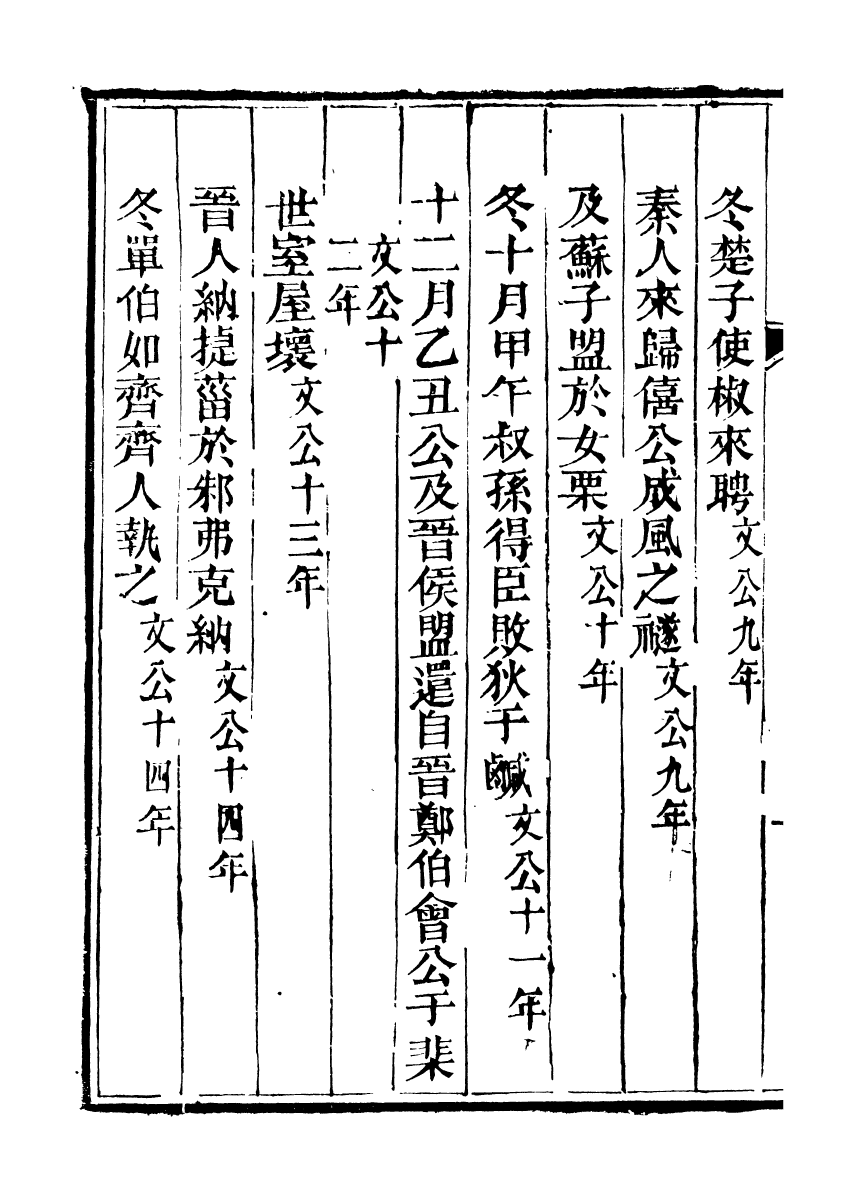 冬楚子使椒來聘文公九年
秦人來歸僖公成風之襚文公九年
及蘇子盟於女栗文公十年
冬十月甲午叔孫得臣敗狄于鹹文公十一年
十二月乙丑公及晉侯盟還自晉鄭伯會公于棐
文公十
二年
世室屋壞文公十三年
晉人納捷菑於邾弗克納文公十四年
冬單伯如齊齊人執之文公十四年